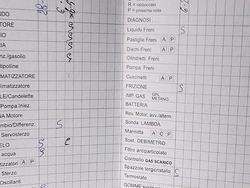 R = riparazioni
P = prossima volta
DIAGNOSI
Liquido Freni S
Pastiglie Freni A P
Dischi Freni A P
Cilindretti Freni
Pompa Freni
Cuscinetti A P
FRIZIONE S
IMP. GAS GPL METANO
BATTERIA
Rev. Motor. avv./altern.
Sonda LAMBDA
Marmitta A C P
Sost. DEBIMETRO
Filtro antiparticolato
Controllo GAS SCARICO
Spazzole tergicristallo S
Termostato
TORE
nz./gasolio S
tipolline
MATIZZATORE
climatizzatore
LE/Candelette
Pompa Iniez.
NA Motore
ambio/Differenz. S
Servosterzo
ELO
acqua
tizzatori A P
Sterzo
Oscillanti